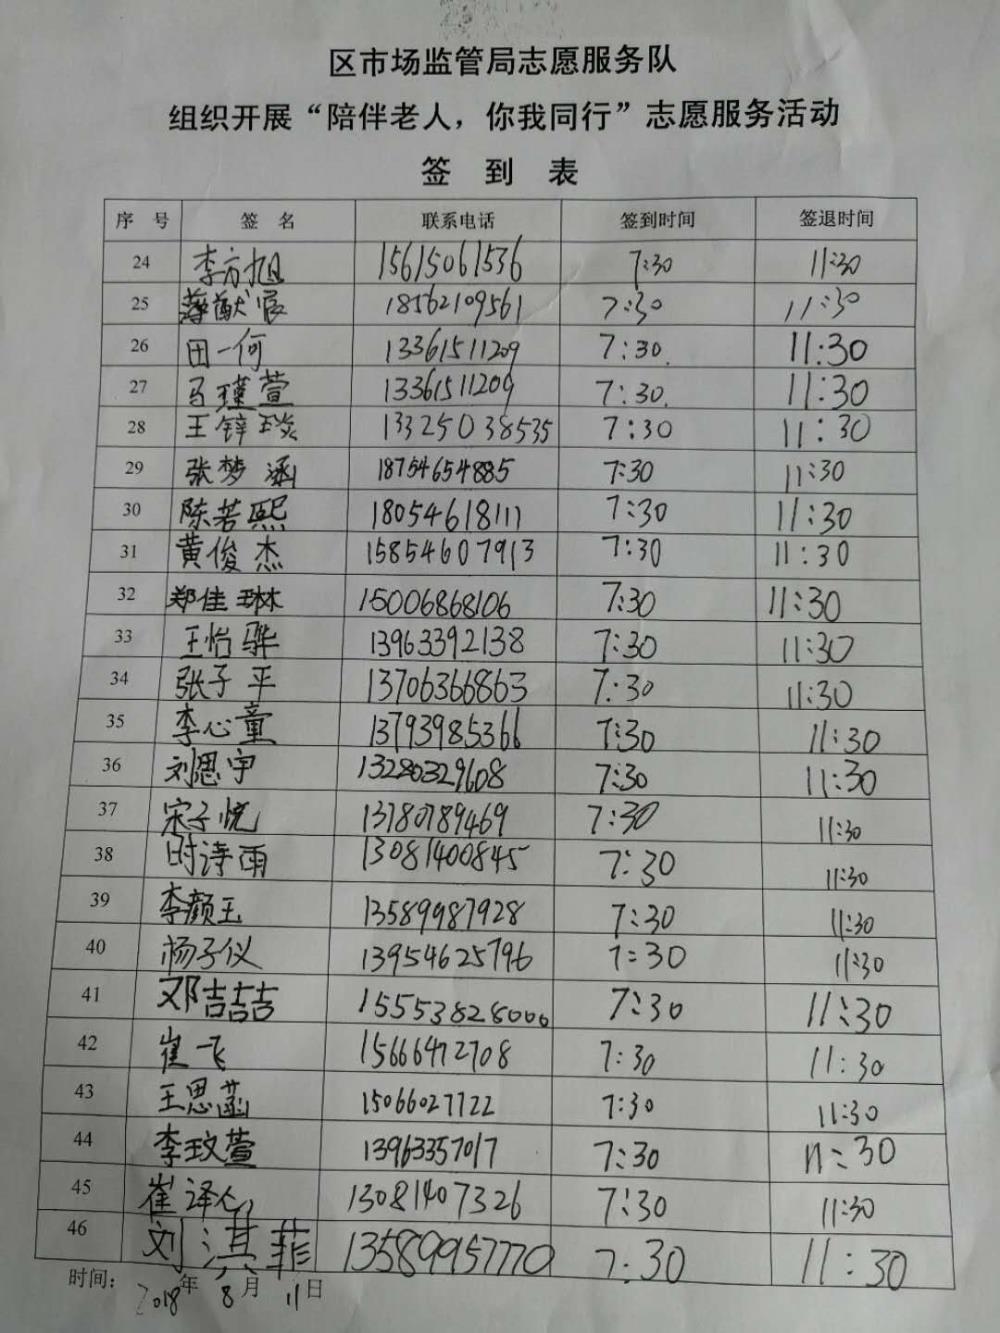 区市场监管局志愿服务队
组织开展“陪伴老人，你我同行”志愿服务活动
签 到 表
序 号 签 名 联系电话 签到时间 签退时间
24 李方旭 15615061536 7:30 11:30
25 薄猷宸 18562109561 7:30 11:30
26 田一何 13361511209 7:30 11:30
27 马瑾萱 13361511209 7:30 11:30
28 王锌琰 13325038535 7:30 11:30
29 张梦涵 18754654885 7:30 11:30
30 陈若熙 18054618111 7:30 11:30
31 黄俊杰 15854607913 7:30 11:30
32 郑佳琳 15006868106 7:30 11:30
33 王怡骅 13963392138 7:30 11:30
34 张子平 13706366863 7:30 11:30
35 李心童 13793985366 7:30 11:30
36 刘思宇 13280329608 7:30 11:30
37 宋子悦 13780789469 7:30 11:30
38 时诗雨 13081400845 7:30 11:30
39 李颜玉 13589987928 7:30 11:30
40 杨子仪 13954625796 7:30 11:30
41 邓吉喆 15553828000 7:30 11:30
42 崔飞 15666472708 7:30 11:30
43 王思菡 15066027722 7:30 11:30
44 李玟萱 13963357017 7:30 11:30
45 崔译 13081407326 7:30 11:30
46 刘淇菲 13589957770 7:30 11:30
时间： 2018年 8月 11日